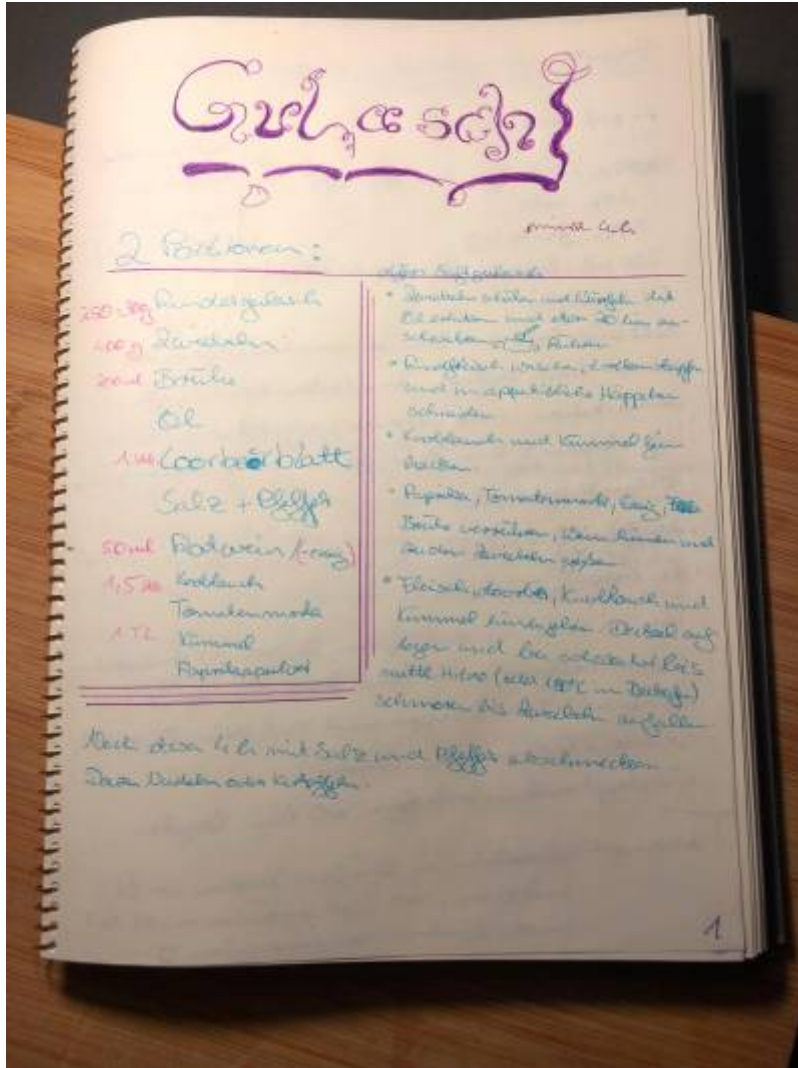 Gulasch!
mind 4h
2 Portionen:
Rindergulasch
400g Zwiebeln
200ml Brühe
Öl
Loorbeerblatt
Salz + Pfeffer
50ml Rotwein (-essig)
1,5 Knoblauch
Tomatenmark
1 TL Kümmel
Paprikapulver
Saftgulasch
• Zwiebeln schälen und würfeln. Mit
Öl und etwa 20 min
• Rindfleisch waschen, trocken tupfen
und in appetitliche Häppchen
schneiden
• Knoblauch und Kümmel fein
hacken
• Paprika, Tomatenmark, Essig,
Brühe verrühren, und
zu den Zwiebeln gießen
• Fleisch, Knoblauch und
Kümmel hinzugeben. Deckel auf
legen und bei schwacher bis
mittl Hitze (oder 180°C im Backofen)
schmoren bis Zwiebeln zerfallen
Nach etwa 4h mit Salz und Pfeffer abschmecken
Dazu Nudeln oder Kartoffeln.
1